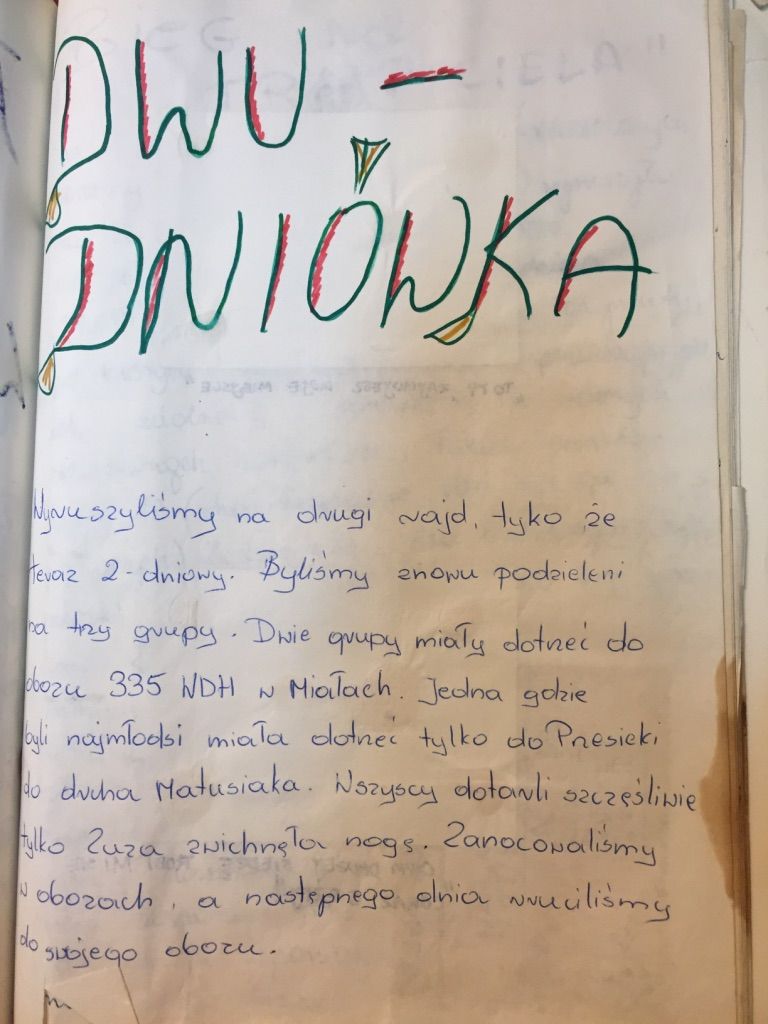 DWU-
DNIÓWKA
Wyruszyliśmy na drugi rajd, tyko że
teraz 2-dniowy. Byliśmy znowu podzieleni
na trzy grupy. Dwie grupy miały dotrzeć do
obozu 335 WDH w Miałach. Jedna gdzie
byli najmłodsi miała dotrzeć tylko do Przesieki
do ducha Matusiaka. Wszyscy dotarli szczęśliwie
tylko Zuza zwichnęła nogę. Zanocowaliśmy
w obozach, a następnego dnia wruciliśmy
do swojego obozu.